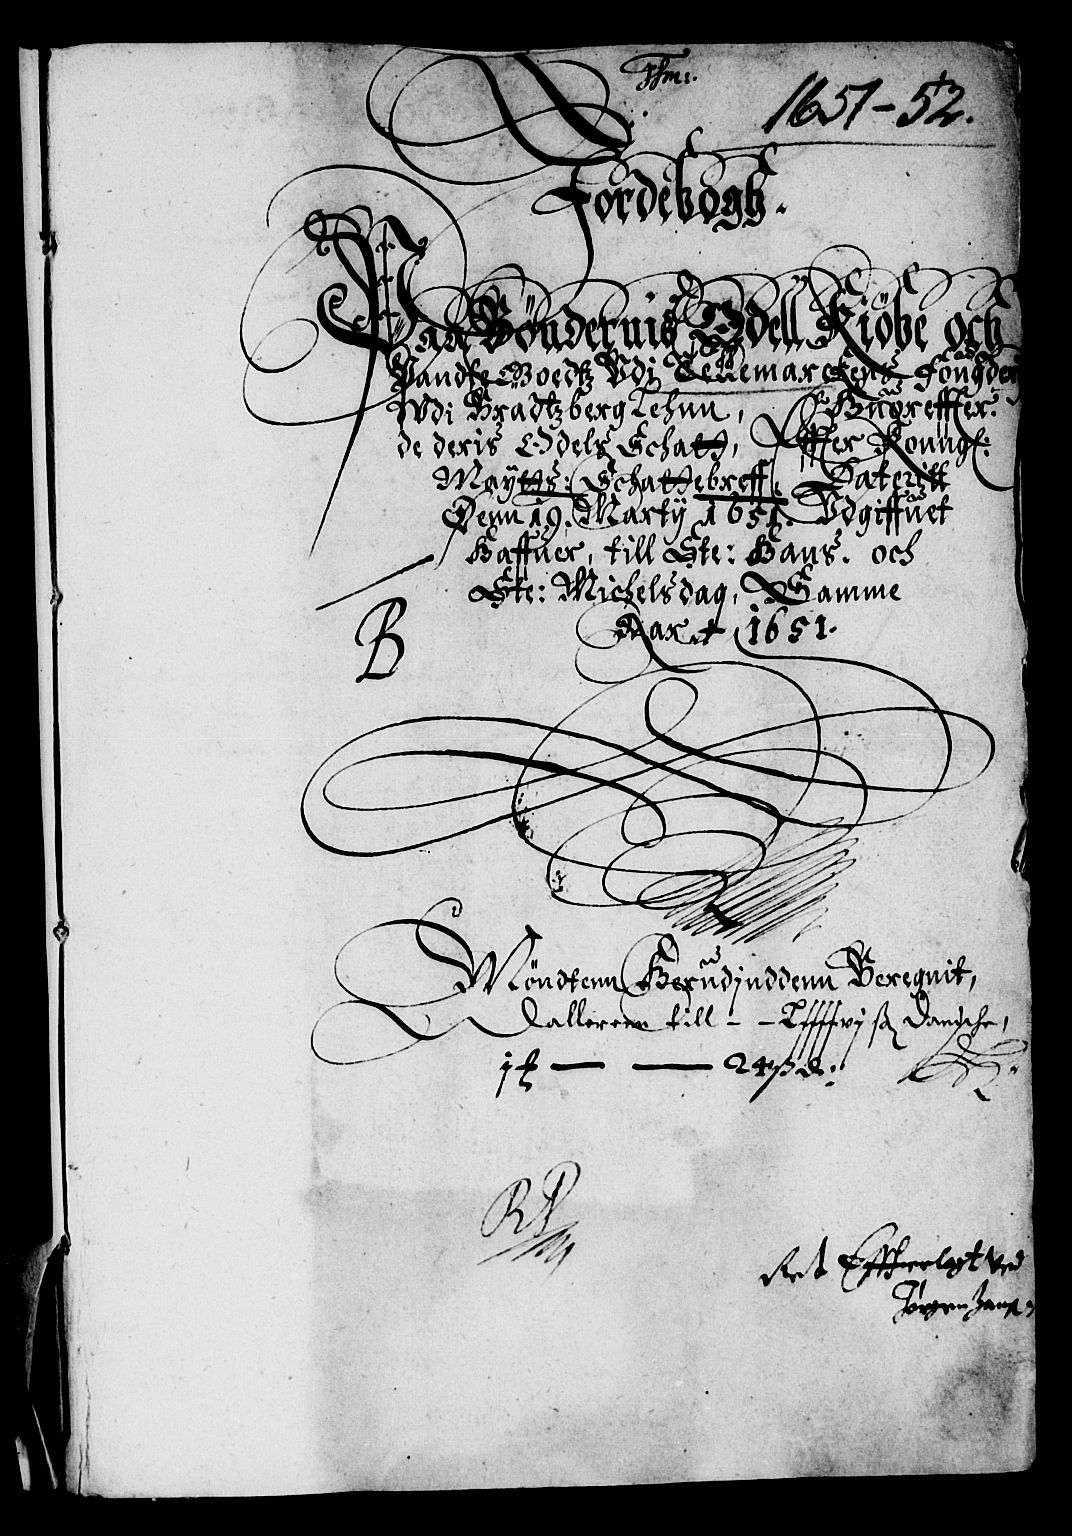 Thm:
1651-52.
Jordebogh.
Paa Bøndernis Odell Kiøbe och
Pandte Goedtz Vdj Tellemarckens Fougderi
Vdi Bradtzberg Lehnn, Huoreffter
de deris Odels Schatt, Effter Konngl:
Maytts: Schattebreff, Dateritt
Denn 19. Martij 1651. Vdgiffuet
Haffuer, till Ste: Hans. och
Ste: Michelsdag, Samme
Aar 1651.
B
Møndtenn Herudjnddenn Beregnit,
Dallerenn till - - Danische,
RP
Ret Effterlagt ved
Jørgen